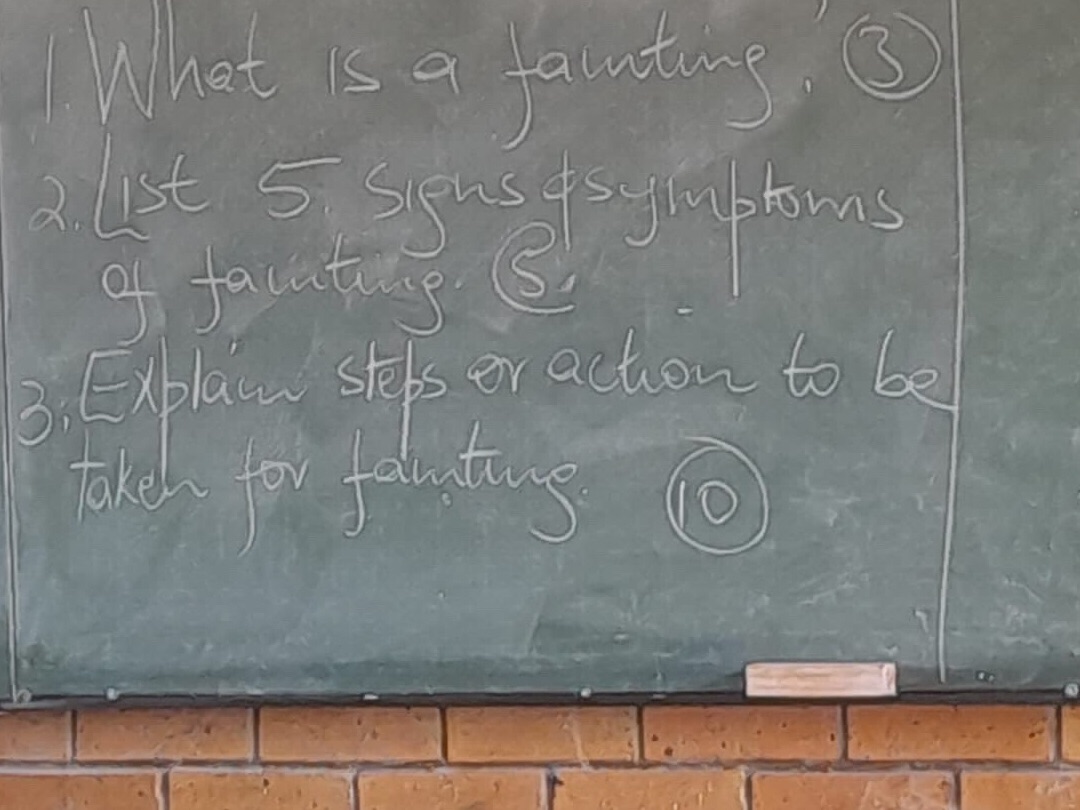 1. What is a fainting. (3)
2. List 5. signs & symptoms
of fainting. (5).
3. Explain steps or action to be
taken for fainting. (10)